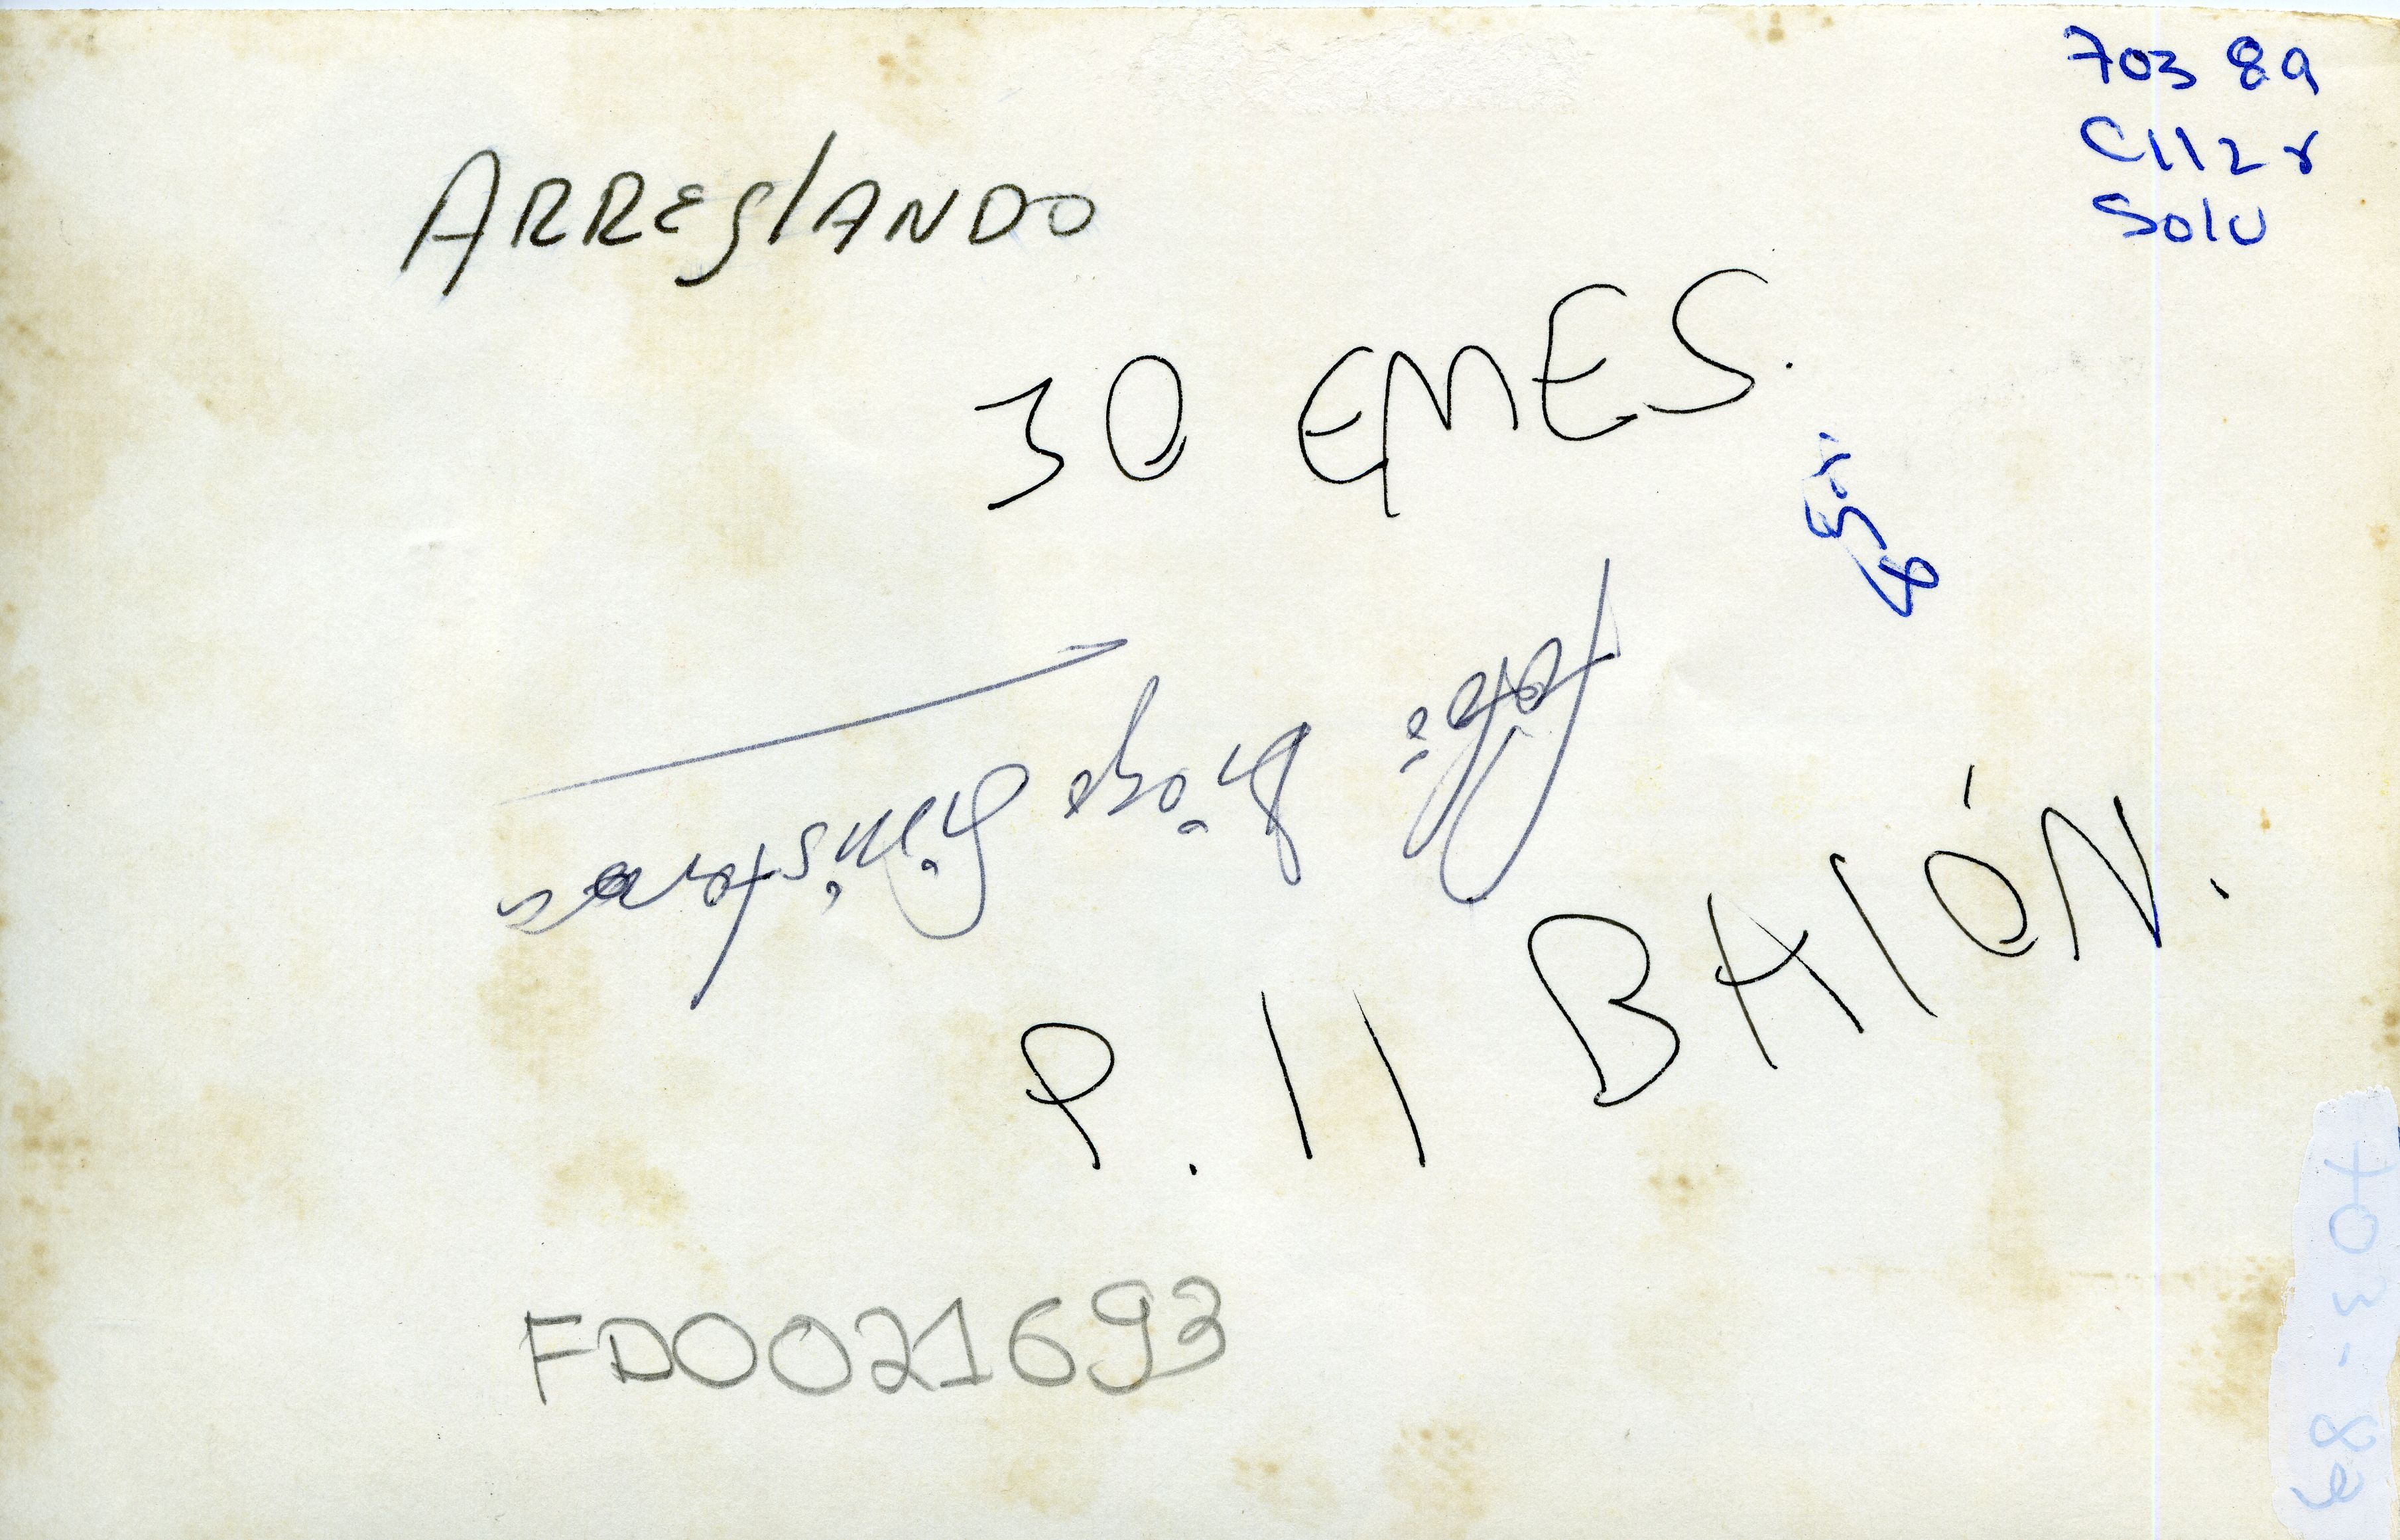 703 89
C112r
Solu
ARREglANDO
30 EMES.
Foto:
P. 11 BAIÓN.
FD0021693
703-89